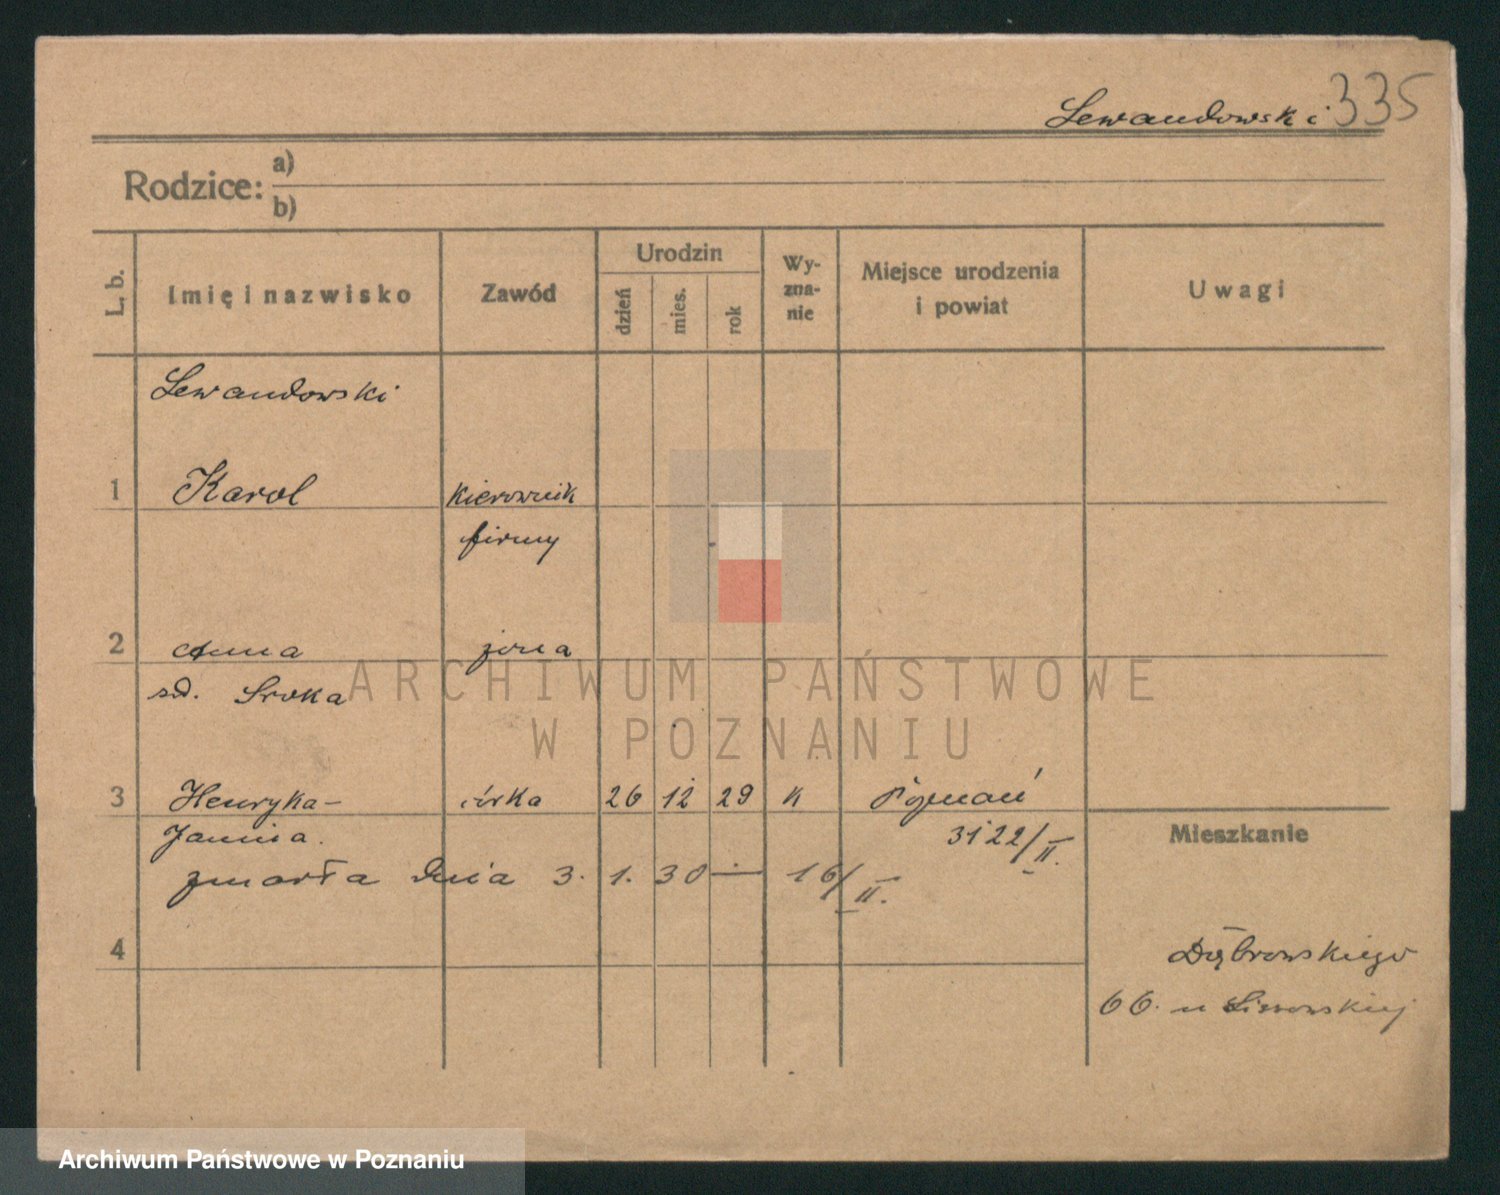 Lewandowski 335
Rodzice: a)
b)
L. b. Imię i nazwisko Zawód Urodzin dzień mies. rok Wy-zna-nie Miejsce urodzenia i powiat Uwagi
Lewandowski
1 Karol kierownik
firmy
2 Anna żona
zd. Sroka
ARCHIWUM PAŃSTWOWE
W POZNANIU
3 Henryka- córka 26 12 29 K Poznań
Janina. 3122/II.
Mieszkanie
zmarła dnia 3. 1. 30 — 16/II.
4
Dąbrowskiego
66. u
Archiwum Państwowe w Poznaniu